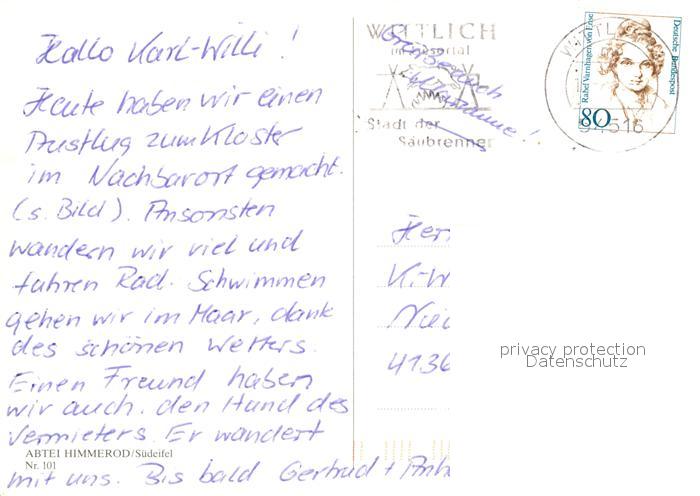 Hallo Karl-Willi!
Heute haben wir einen
Ausflug zum Kloster
im Nachbarort gemacht.
(s. Bild). Ansonsten
wandern wir viel und
fahren Rad. Schwimmen
gehen wir im Maar, dank
des schönen Wetters.
Einen Freund haben
wir auch. den Hund des
Vermieters. Er wandert
mit uns. Bis bald Gertrud +
ABTEI HIMMEROD/Südeifel
Nr. 101
WITTLICH
Stadt der
Säubrenner
Rahel Varnhagen von Ense
Deutsche Bundespost
80
516
Her
K.-W
Nied
4136
privacy protection
Datenschutz